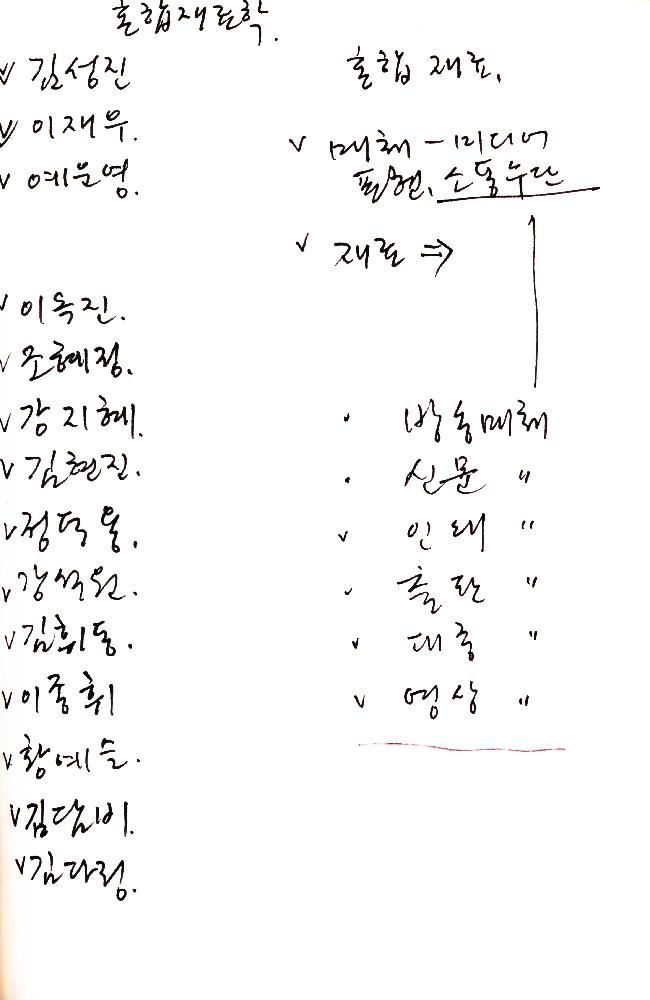 혼합재료학.
김성진
이재우.
예운영.
이옥진.
조혜정.
강지혜.
김현진.
정덕용.
강석원.
김휘동.
이중휘
황예슬.
김담비.
김다정.
혼합 재료.
매체 - 미디어
표현, 소통수단
재료 ⇒
방송매체
신문 〃
인쇄 〃
출판 〃
대중 〃
영상 〃